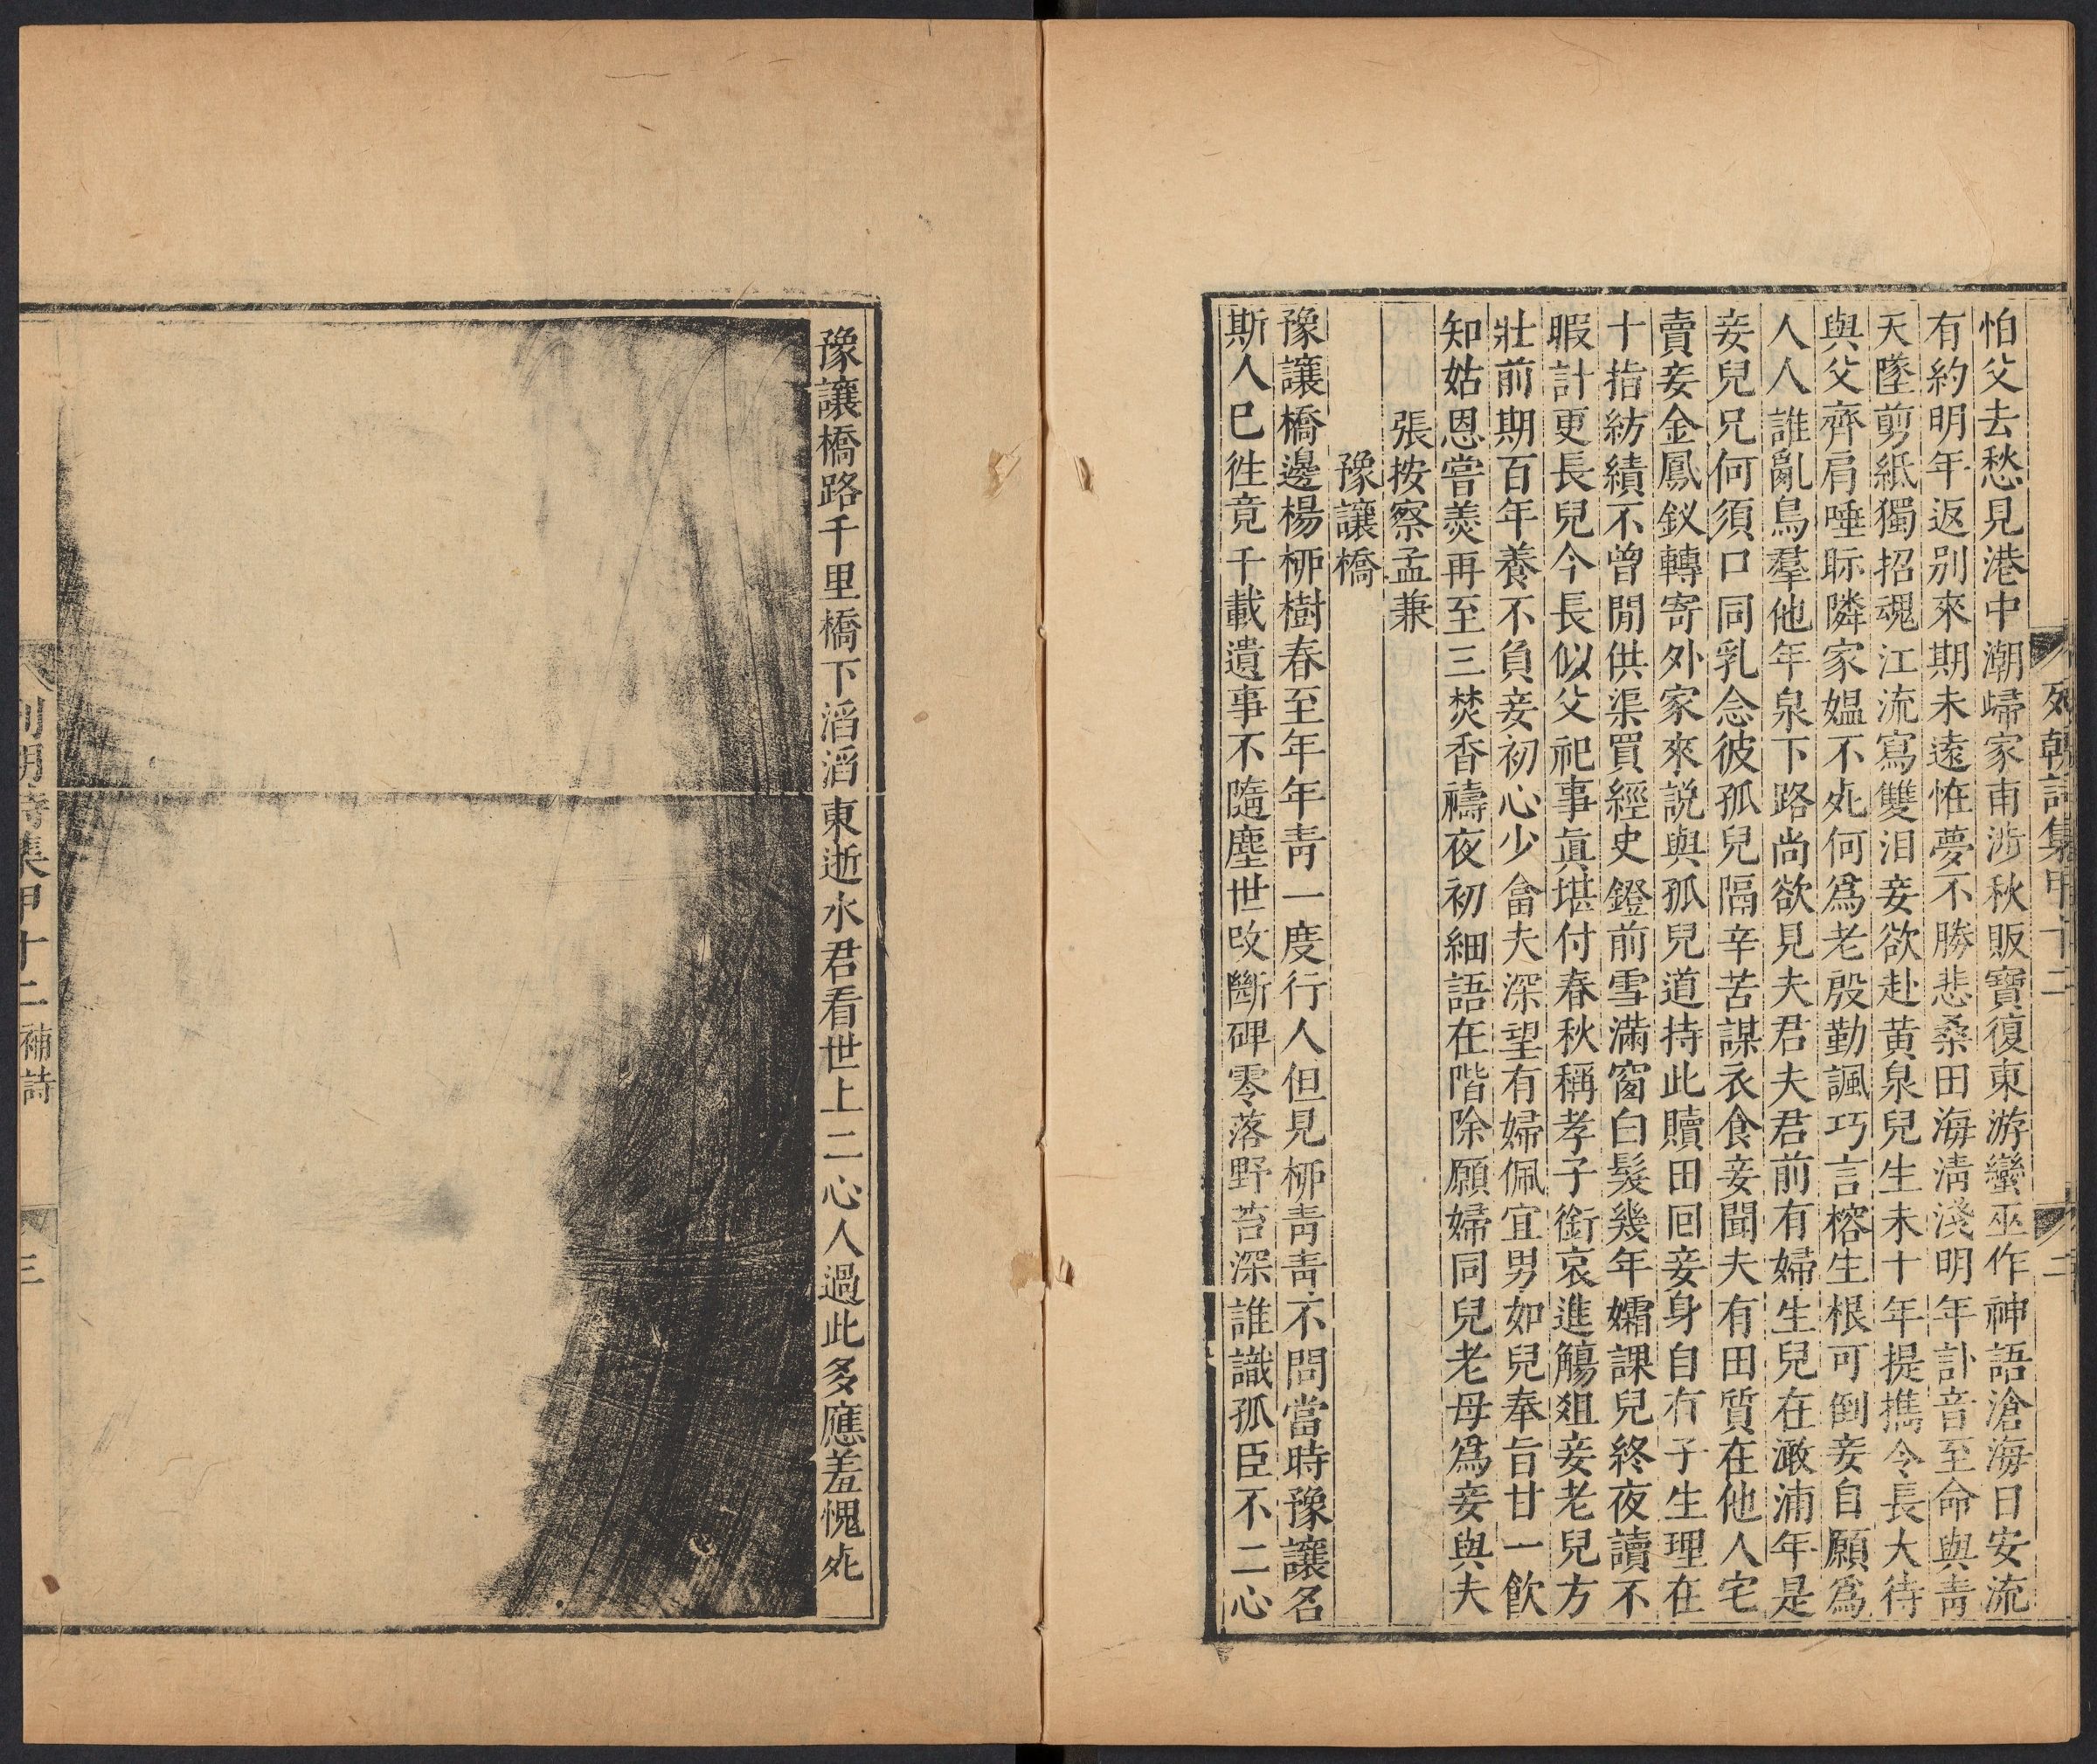 列朝詩集甲十二
二
怕父去愁見港中潮歸家甫涉秋販寶復東游蠻巫作神語滄海日安流
有約明年返别來期未遠惟夢不勝悲桑田海淸淺明年訃音至命與靑
天墜剪紙獨招魂江流寫雙泪妾欲赴黄泉兒生未十年提攜令長大待
與父齊肩唾眎隣家媼不死何爲老殷勤諷巧言榕生根可倒妾自願爲
人人誰亂鳥羣他年泉下路尚欲見夫君夫君前有婦生兒在澉浦年是
妾兒兄何須口同乳念彼孤兒隔辛苦謀衣食妾聞夫有田質在他人宅
賣妾金鳳釵轉寄外家來說與孤兒道持此贖田回妾身自有子生理在
十指紡績不曾閒供渠買經史鐙前雪滿窗白髮幾年孀課兒終夜讀不
暇計更長兒今長似父祀事眞堪付春秋稱孝子銜哀進觴爼妾老兒方
壯前期百年養不負妾初心少畣夫深望有婦佩宜男如兒奉旨甘一飮
知姑恩嘗羮再至三焚香禱夜初細語在階除願婦同兒老母爲妾與夫
張按察孟兼
豫讓橋
豫讓橋邊楊柳樹春至年年靑一度行人但見柳靑靑不問當時豫讓名
斯人已徃竟千載遺事不隨塵世改斷碑零落野苔深誰識孤臣不二心
豫讓橋路千里橋下滔滔東逝水君看世上二心人過此多應羞愧死
列朝詩集甲十二 補詩
三